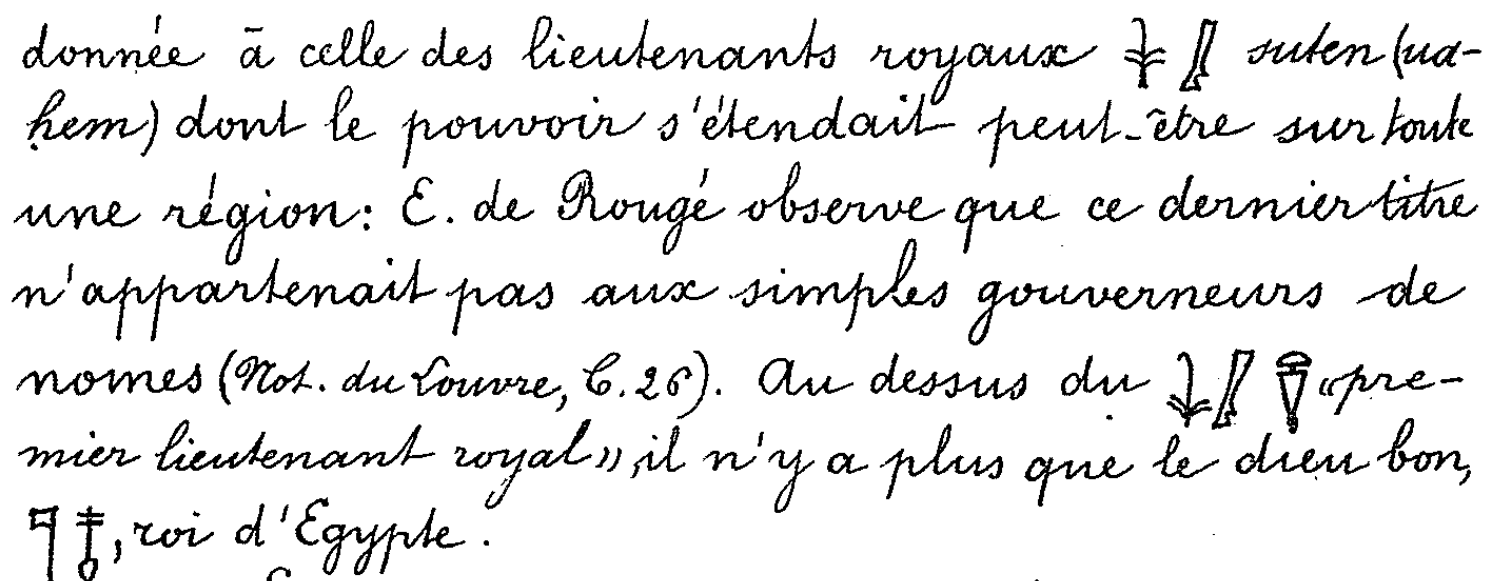 donnée à celle des lieutenants royaux 𓇓 𓄎 suten (ua-
ḥem) dont le pouvoir s'étendait peut-être sur toute
une région: E. de Rougé observe que ce dernier titre
n'appartenait pas aux simples gouverneurs de
nomes (Not. du Louvre, C. 26). Au dessus du 𓇓 𓄎 𓌠 «pre-
mier lieutenant royal», il n'y a plus que le dieu bon,
𓊹 𓄤, roi d'Egypte.